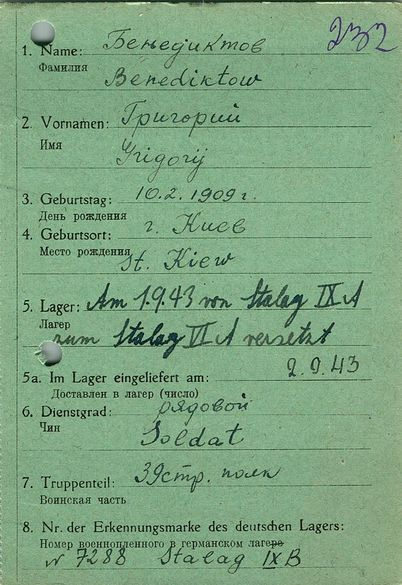 232
1. Name: Бенедиктов
Фамилия
Benediktow
2. Vornamen: Григорий
Имя
Grigorij
3. Geburtstag: 10.2.1909 г.
День рождения
4. Geburtsort: г. Киев
Место рождения
St. Kiew
5. Lager: Am 1.9.43 von Stalag IX A
Лагер
zum Stalag VI A versetzt
5a. Im Lager eingeliefert am: 2.9.43
Доставлен в лагер (число)
6. Dienstgrad: рядовой
Чин
Soldat
7. Truppenteil: 39 стр. полк
Воинская часть
8. Nr. der Erkennungsmarke des deutschen Lagers:
Номер военнопленного в германском лагере
N 7288 Stalag IX B